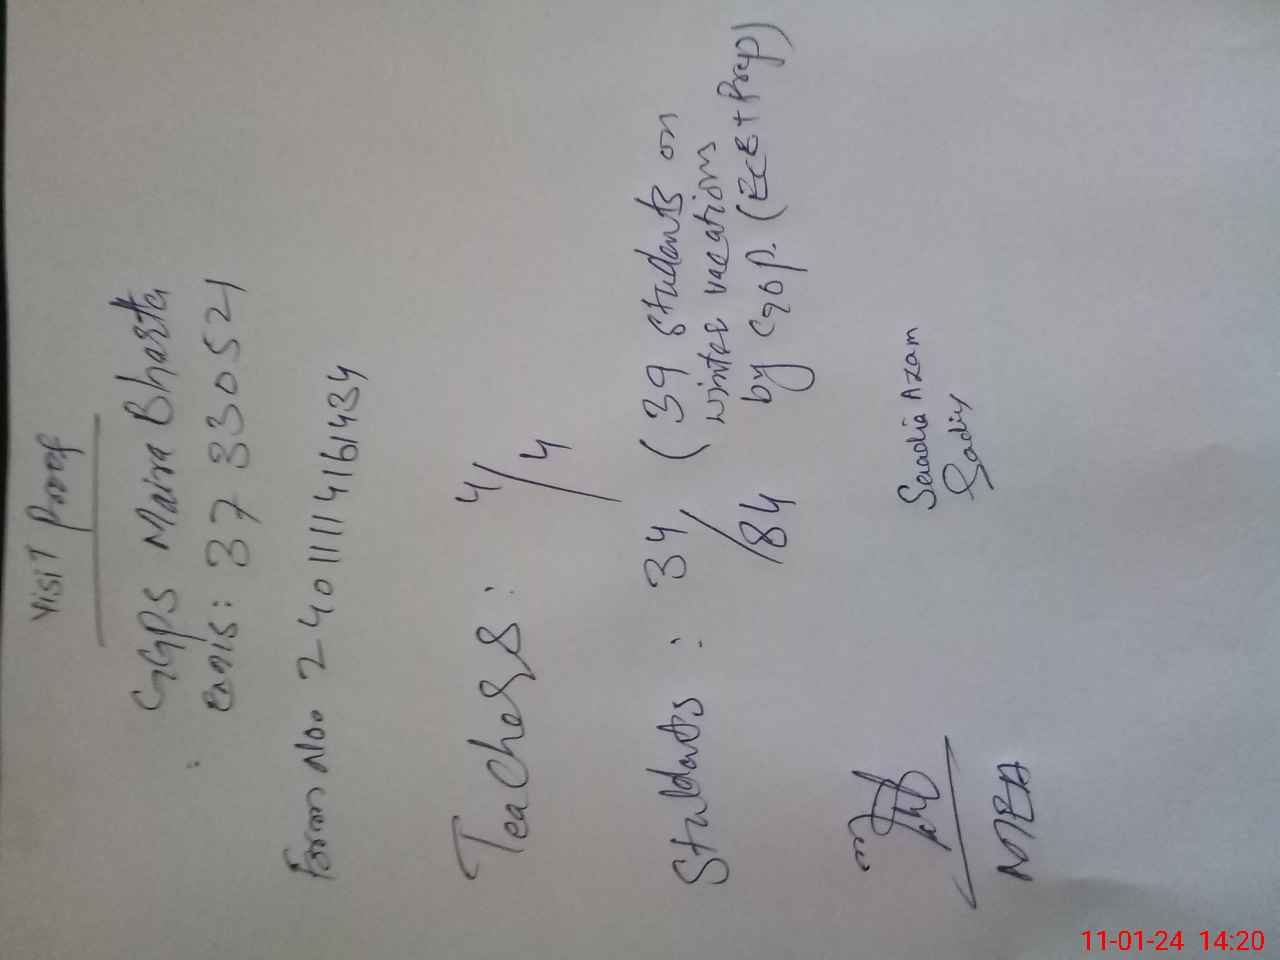 Visit Proof
GGPS Maira Bharta
emis: 37330521
Form No. 24011114161434
Teachers: 4/4
Students: 34/84 (39 students on
winter vacations
by Gop. (ECE + Prep)
Saadia Azam
Sadia
MEA
11-01-24 14:20